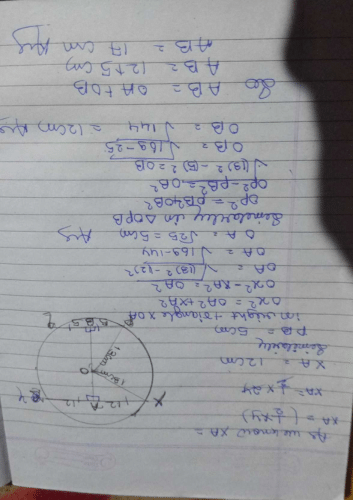 As we know XA =
XA = (1/2 XY)
XA = 1/2 × 24
XA = 12cm
Similarly
PB = 5cm
In right triangle XOA
OX² = OA² + XA²
OX² - XA² = OA²
OA = √(13)² - (12)²
OA = √169-144
OA = √25 = 5cm Ans
Similarly in △OPB
OP² = PB² + OB²
OP² - PB² = OB²
√(13)² - (5)² = OB
OB = √169-25
OB = √144 = 12cm Ans
So AB = OA + OB
AB = 12+5 cm
AB = 17 cm Ans
X
12
A
12
Y
O
13cm
13cm
P
5
B
5